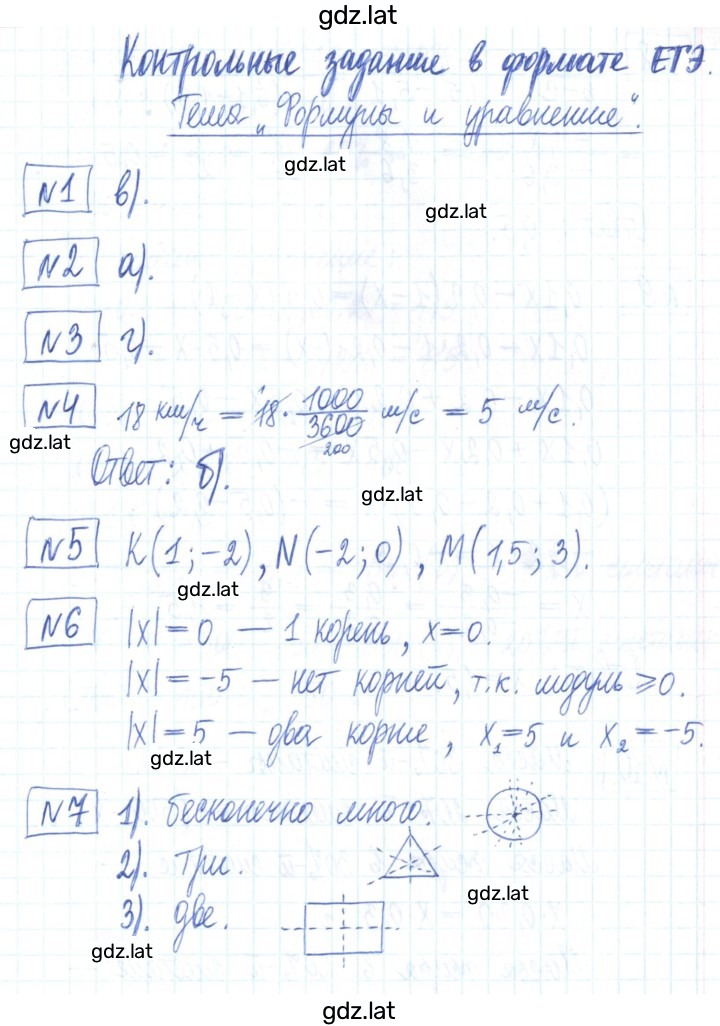 gdz.lat
Контрольные задание в формате ЕГЭ.
Тема „Формулы и уравнение".
gdz.lat
№1 в).
gdz.lat
№2 а).
№3 г).
№4 18 км/ч = 18 · 1000/3600 м/с = 5 м/с.
200
gdz.lat
Ответ: б).
gdz.lat
№5 K(1; -2), N(-2; 0), M(1,5; 3).
gdz.lat
№6 |x| = 0 — 1 корень, x=0.
|x| = -5 — нет корней, т.к. модуль ≥0.
|x| = 5 — два корня, x₁=5 и x₂=-5.
gdz.lat
№7 1). бесконечно много.
2). три.
gdz.lat
3). две.
gdz.lat
gdz.lat